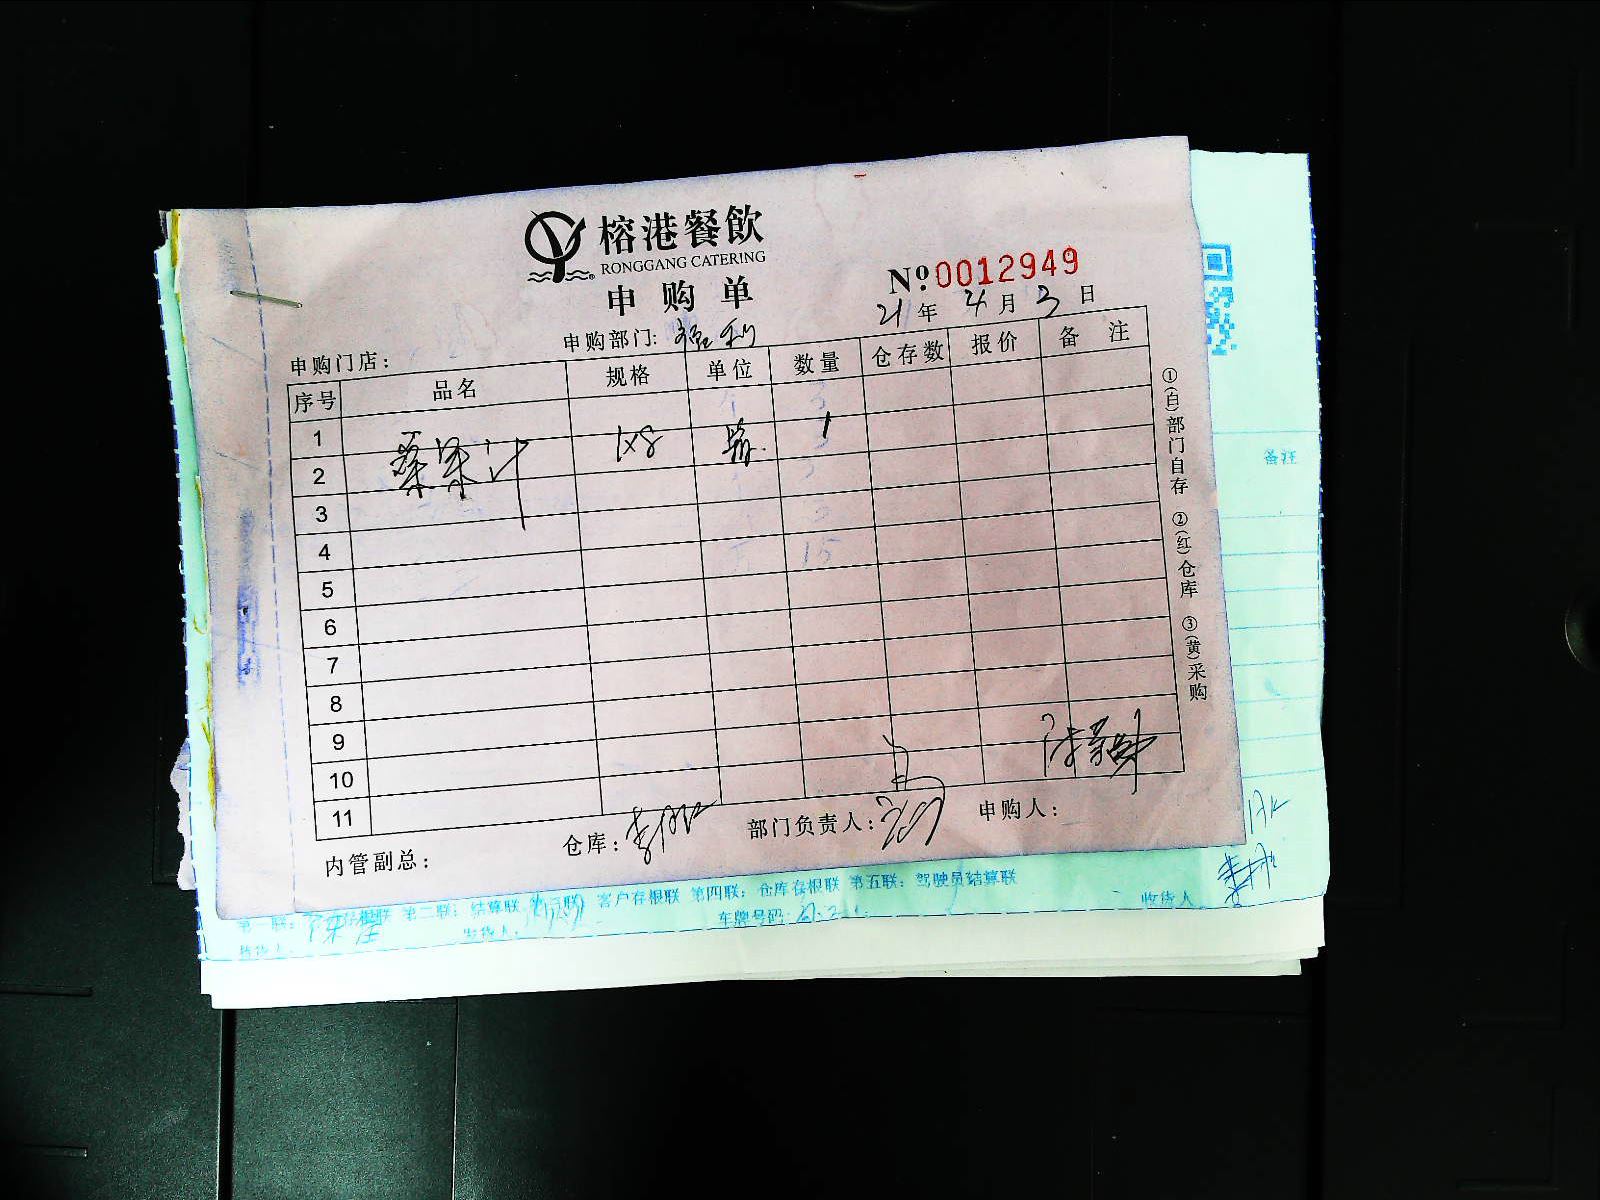 榕港餐飲
RONGGANG CATERING
申购单
№0012949
21年4月3日
申购门店：
申购部门：福利
序号 品名 规格 单位 数量 仓存数 报价 备注
1
2 桑果汁 1×8 箱 1
3
4
5
6
7
8
9
10
11
内管副总：
仓库：
部门负责人：
申购人：
①(白)部门自存 ②(红)仓库 ③(黄)采购
备注
第二联：结算联 客户存根联 第四联：仓库存根联 第五联：驾驶员结算联
车牌号码：
收货人